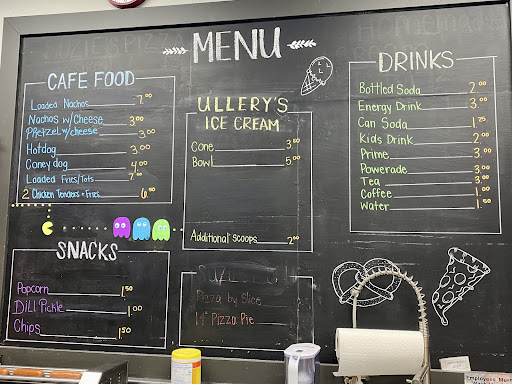 MENU
CAFE FOOD
Loaded Nachos 7.00
Nachos w/Cheese 3.00
Pretzel w/cheese 3.00
Hotdog 3.00
Coney dog 4.00
Loaded Fries/Tots 7.00
2 Chicken Tenders + Fries 6.00
SNACKS
Popcorn 1.50
Dill Pickle 1.00
Chips 1.50
ULLERY'S
ICE CREAM
Cone 3.00
Bowl 5.00
Additional Scoops 2.00
Pizza by Slice
14" Pizza Pie
DRINKS
Bottled Soda 2.00
Energy Drink 3.00
Can Soda 1.75
Kids Drink 2.00
Prime 3.00
Powerade 3.00
Tea 3.00
Coffee 1.00
Water 1.50
Employees Must